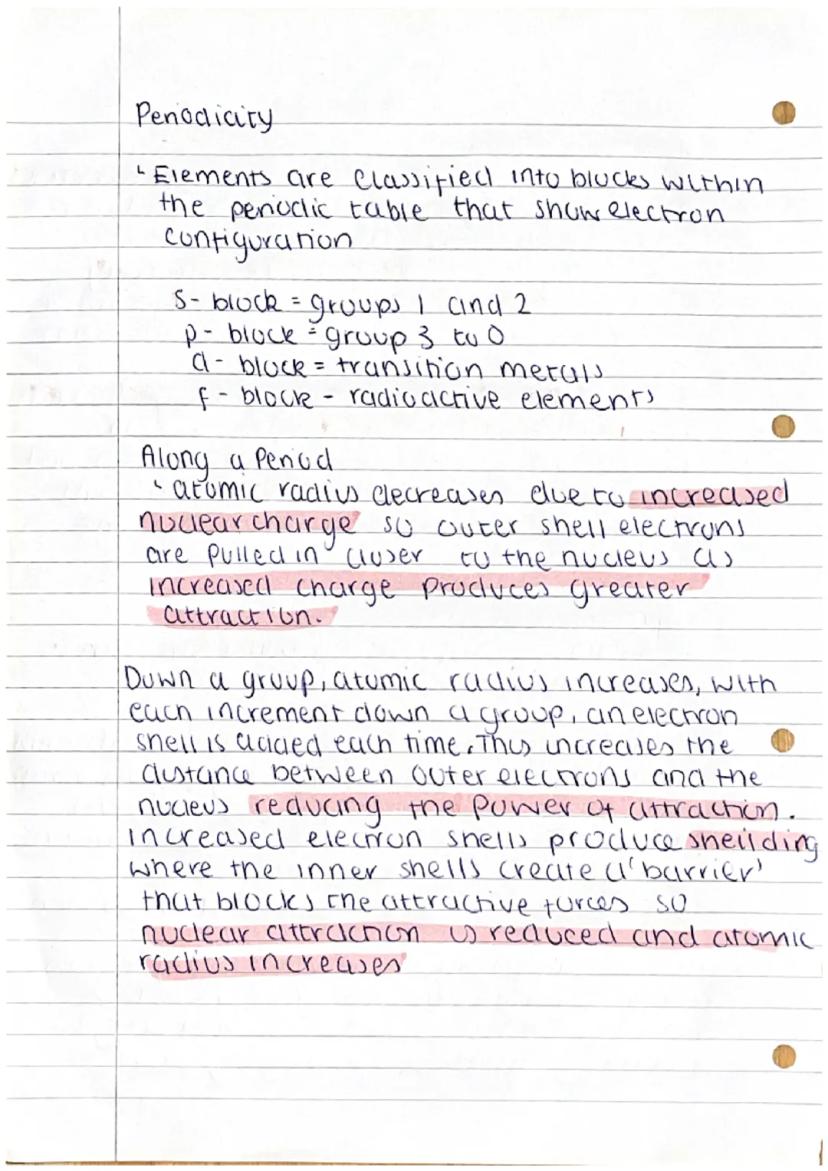 Periodicity
Elements are classified into blocks within
the periodic table that show electron
configuration
s- block = groups 1 and 2
p- block = group 3 to 0
d- block = transition metals
f - block - radioactive elements
Along a Period
atomic radius decreases due to increased
nuclear charge so outer shell electrons
are pulled in closer to the nucleus as
increased charge produces greater
attraction.
Down a group, atomic radius increases, with
each increment down a group, an electron
shell is added each time. This increases the
distance between outer electrons and the
nucleus reducing the power of attraction.
Increased electron shells produce sheilding
where the inner shells create a 'barrier'
that blocks the attractive forces so
nuclear attraction is reduced and atomic
radius increases